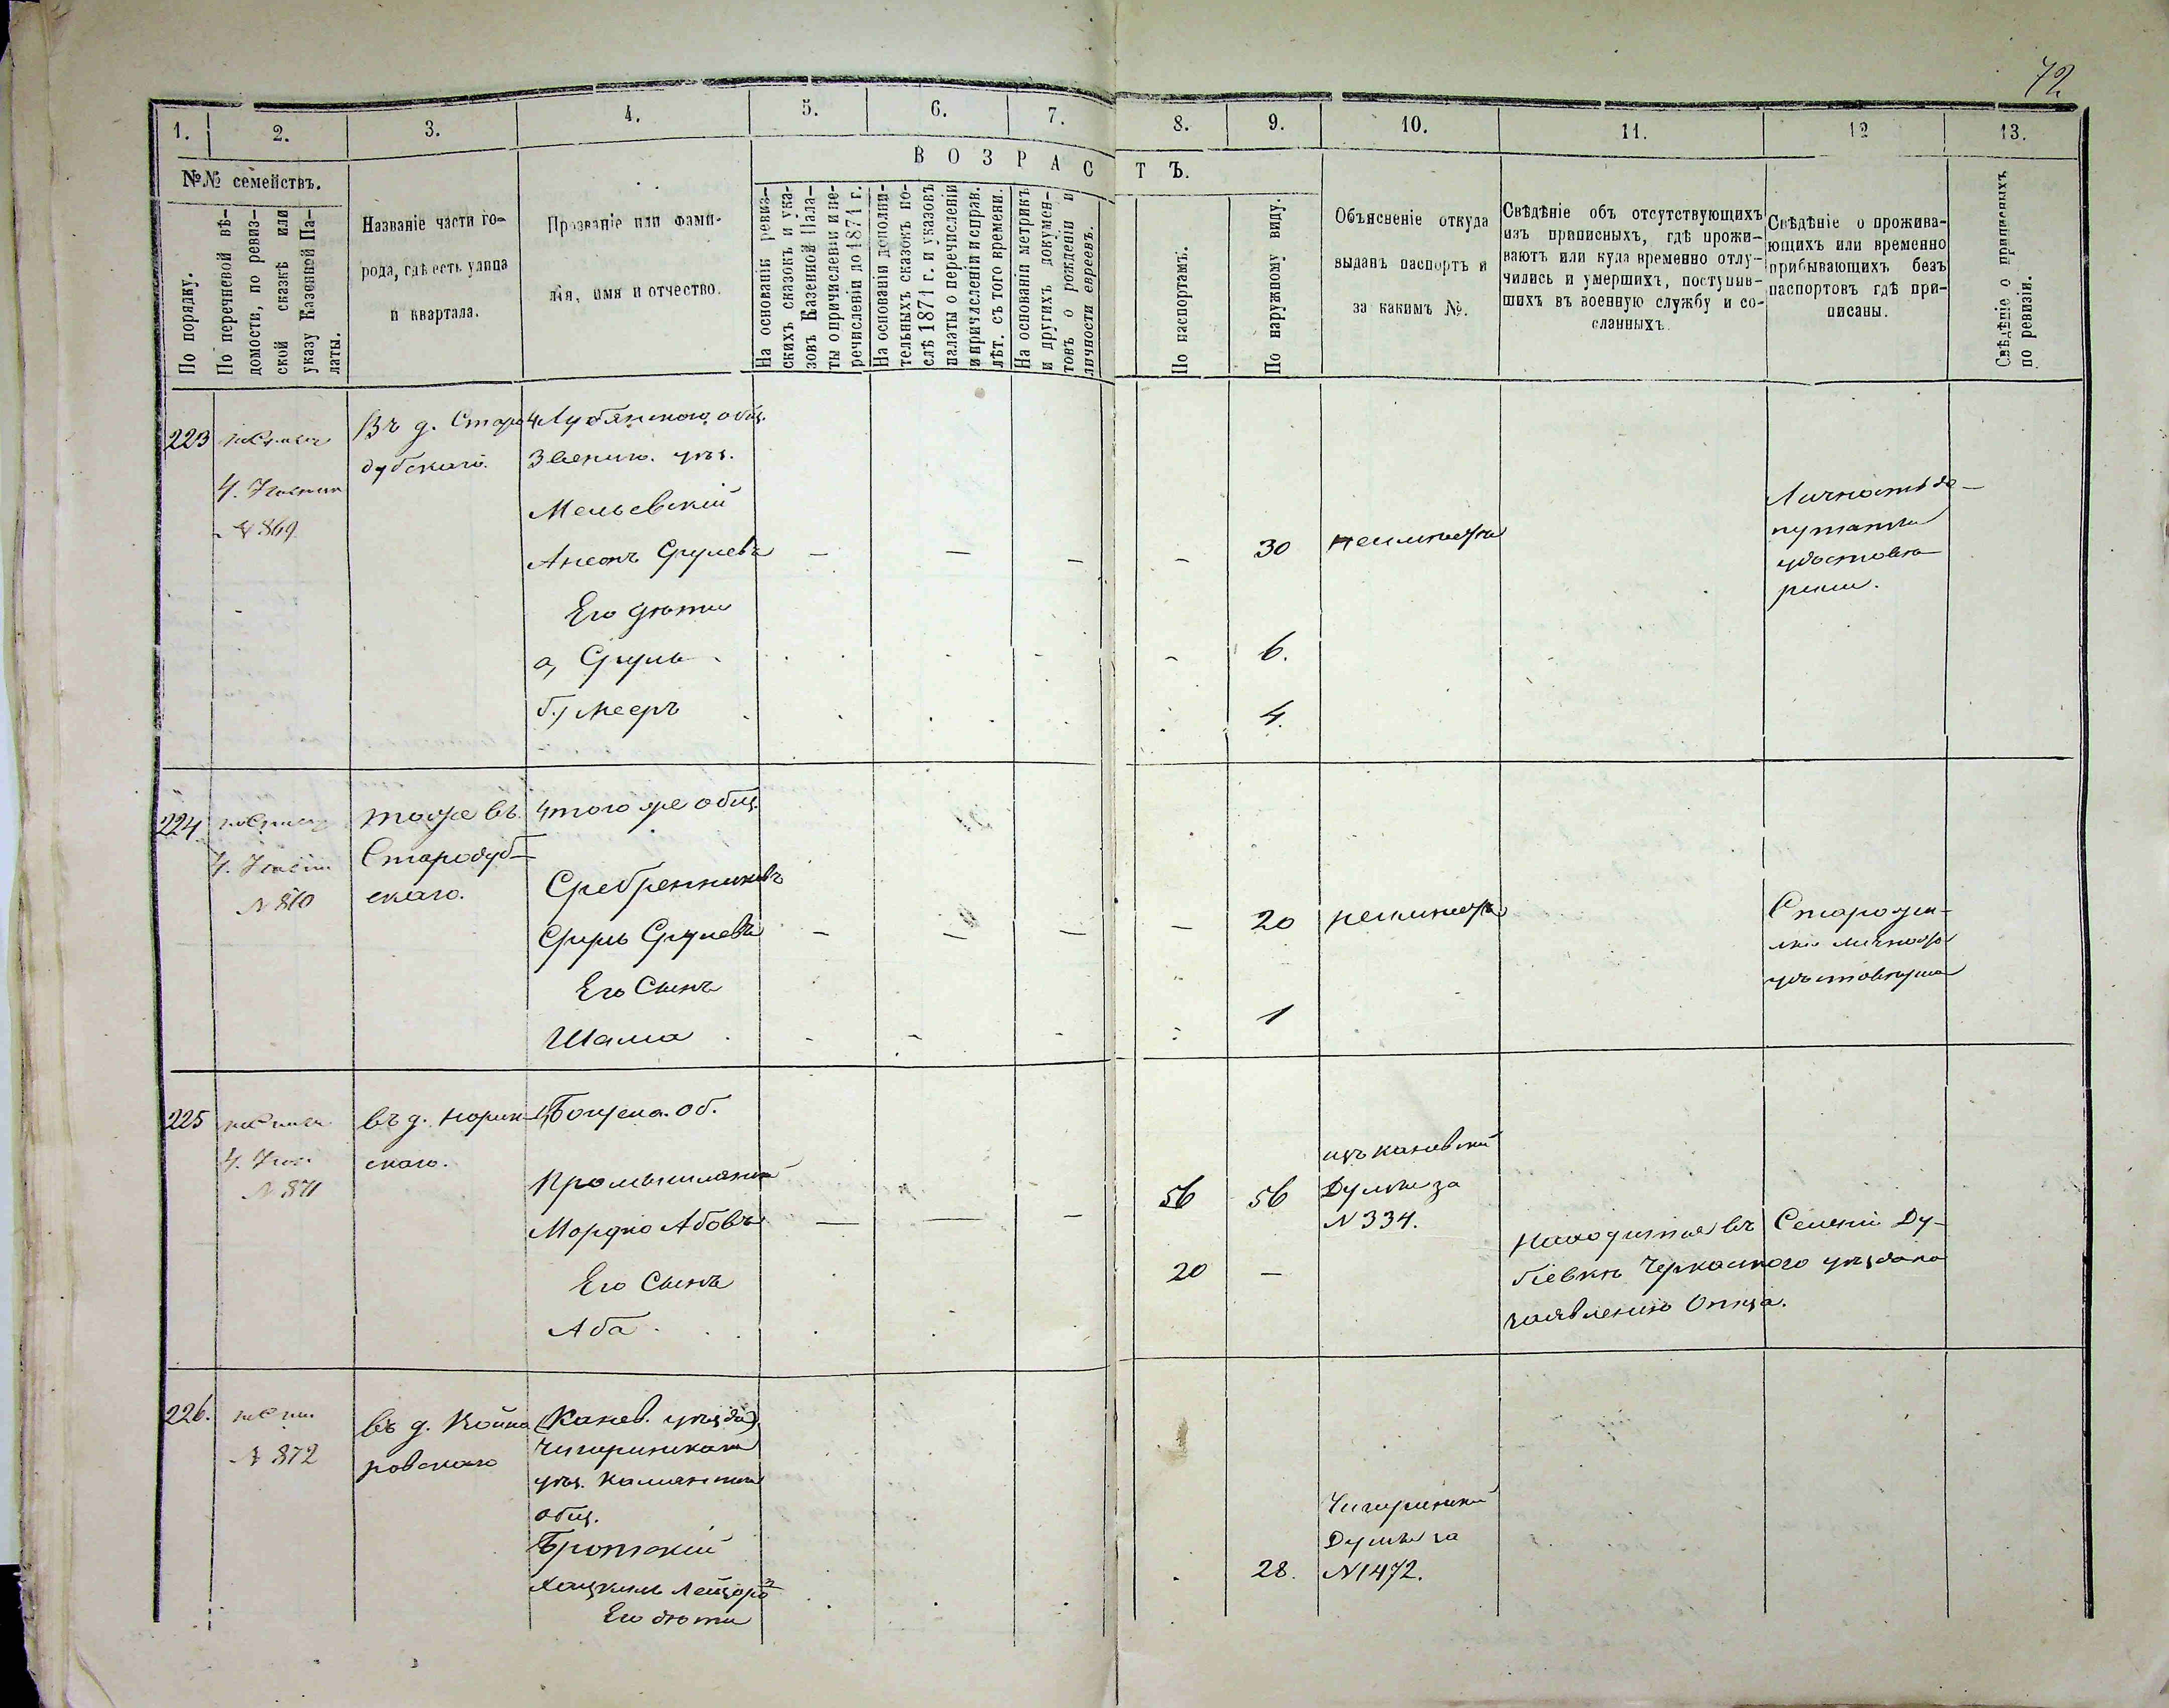 72
1.
2.
3.
4.
5.
6.
7.
8.
9.
10.
11.
12
13.
№№ семействъ.
По порядку.
По перечневой вѣ-
домости, по ревиз-
ской сказкѣ или
указу Казенной Па-
латы.
Названіе части го-
рода, гдѣ есть улица
и квартала.
Прозваніе или фами-
лія, имя и отчество.
ВОЗРАСТЪ.
На основаніи ревиз-
скихъ сказокъ и ука-
зовъ Казенной Пала-
ты о причисленіи и пе-
речисленіи до 1874 г.
На основаніи дополни-
тельныхъ сказокъ по-
слѣ 1874 г. и указовъ
палаты о перечисленіи
и причисленіи и справ.
лѣт. съ того времени.
На основаніи метрикъ
и другихъ докумен-
товъ о рожденіи и
личности евреевъ.
По паспортамъ.
По наружному виду.
Объясненіе откуда
выданъ паспортъ и
за какимъ №.
Свѣдѣніе объ отсутствующихъ
изъ приписныхъ, гдѣ прожи-
ваютъ или куда временно отлу-
чились и умершихъ, поступив-
шихъ въ военную службу и со-
сланныхъ.
Свѣдѣніе о прожива-
ющихъ или временно
прибывающихъ безъ
паспортовъ гдѣ при-
писаны.
Свѣдѣніе о приписныхъ
по ревизіи.
223
№ 869
Въ д. Старо
дубскаго.
Лубянского общ.
Звениг. уѣз.
Мельевскій
Срулевъ
30
неимѣетъ
Личность де-
путаты
удостовѣ
рили.
Его дѣти
а, Сруль
6.
б.) Мееръ
4.
224
№ 870
тоже въ
Стародуб-
скаго.
того же общ.
Сребренниковъ
Срулевъ
20
неимѣетъ
Его Сынъ
Шама
1
225
№ 871
въ д.
скаго.
об.
Мордко Абовъ
56
56
изъ Каневской
Думы за
№ 334.
Его Сынъ
Аба
20
Находится въ Селеніи Ду-
біевкѣ Черкаского уѣзда по
заявленію Отца.
226.
№ 872
въ д.
ровскаго
(Канев. уѣзда)
Чигиринскаго
уѣз.
общ.
Бротскій
28.
Чигиринской
Думы за
№ 1472.
Его дѣти